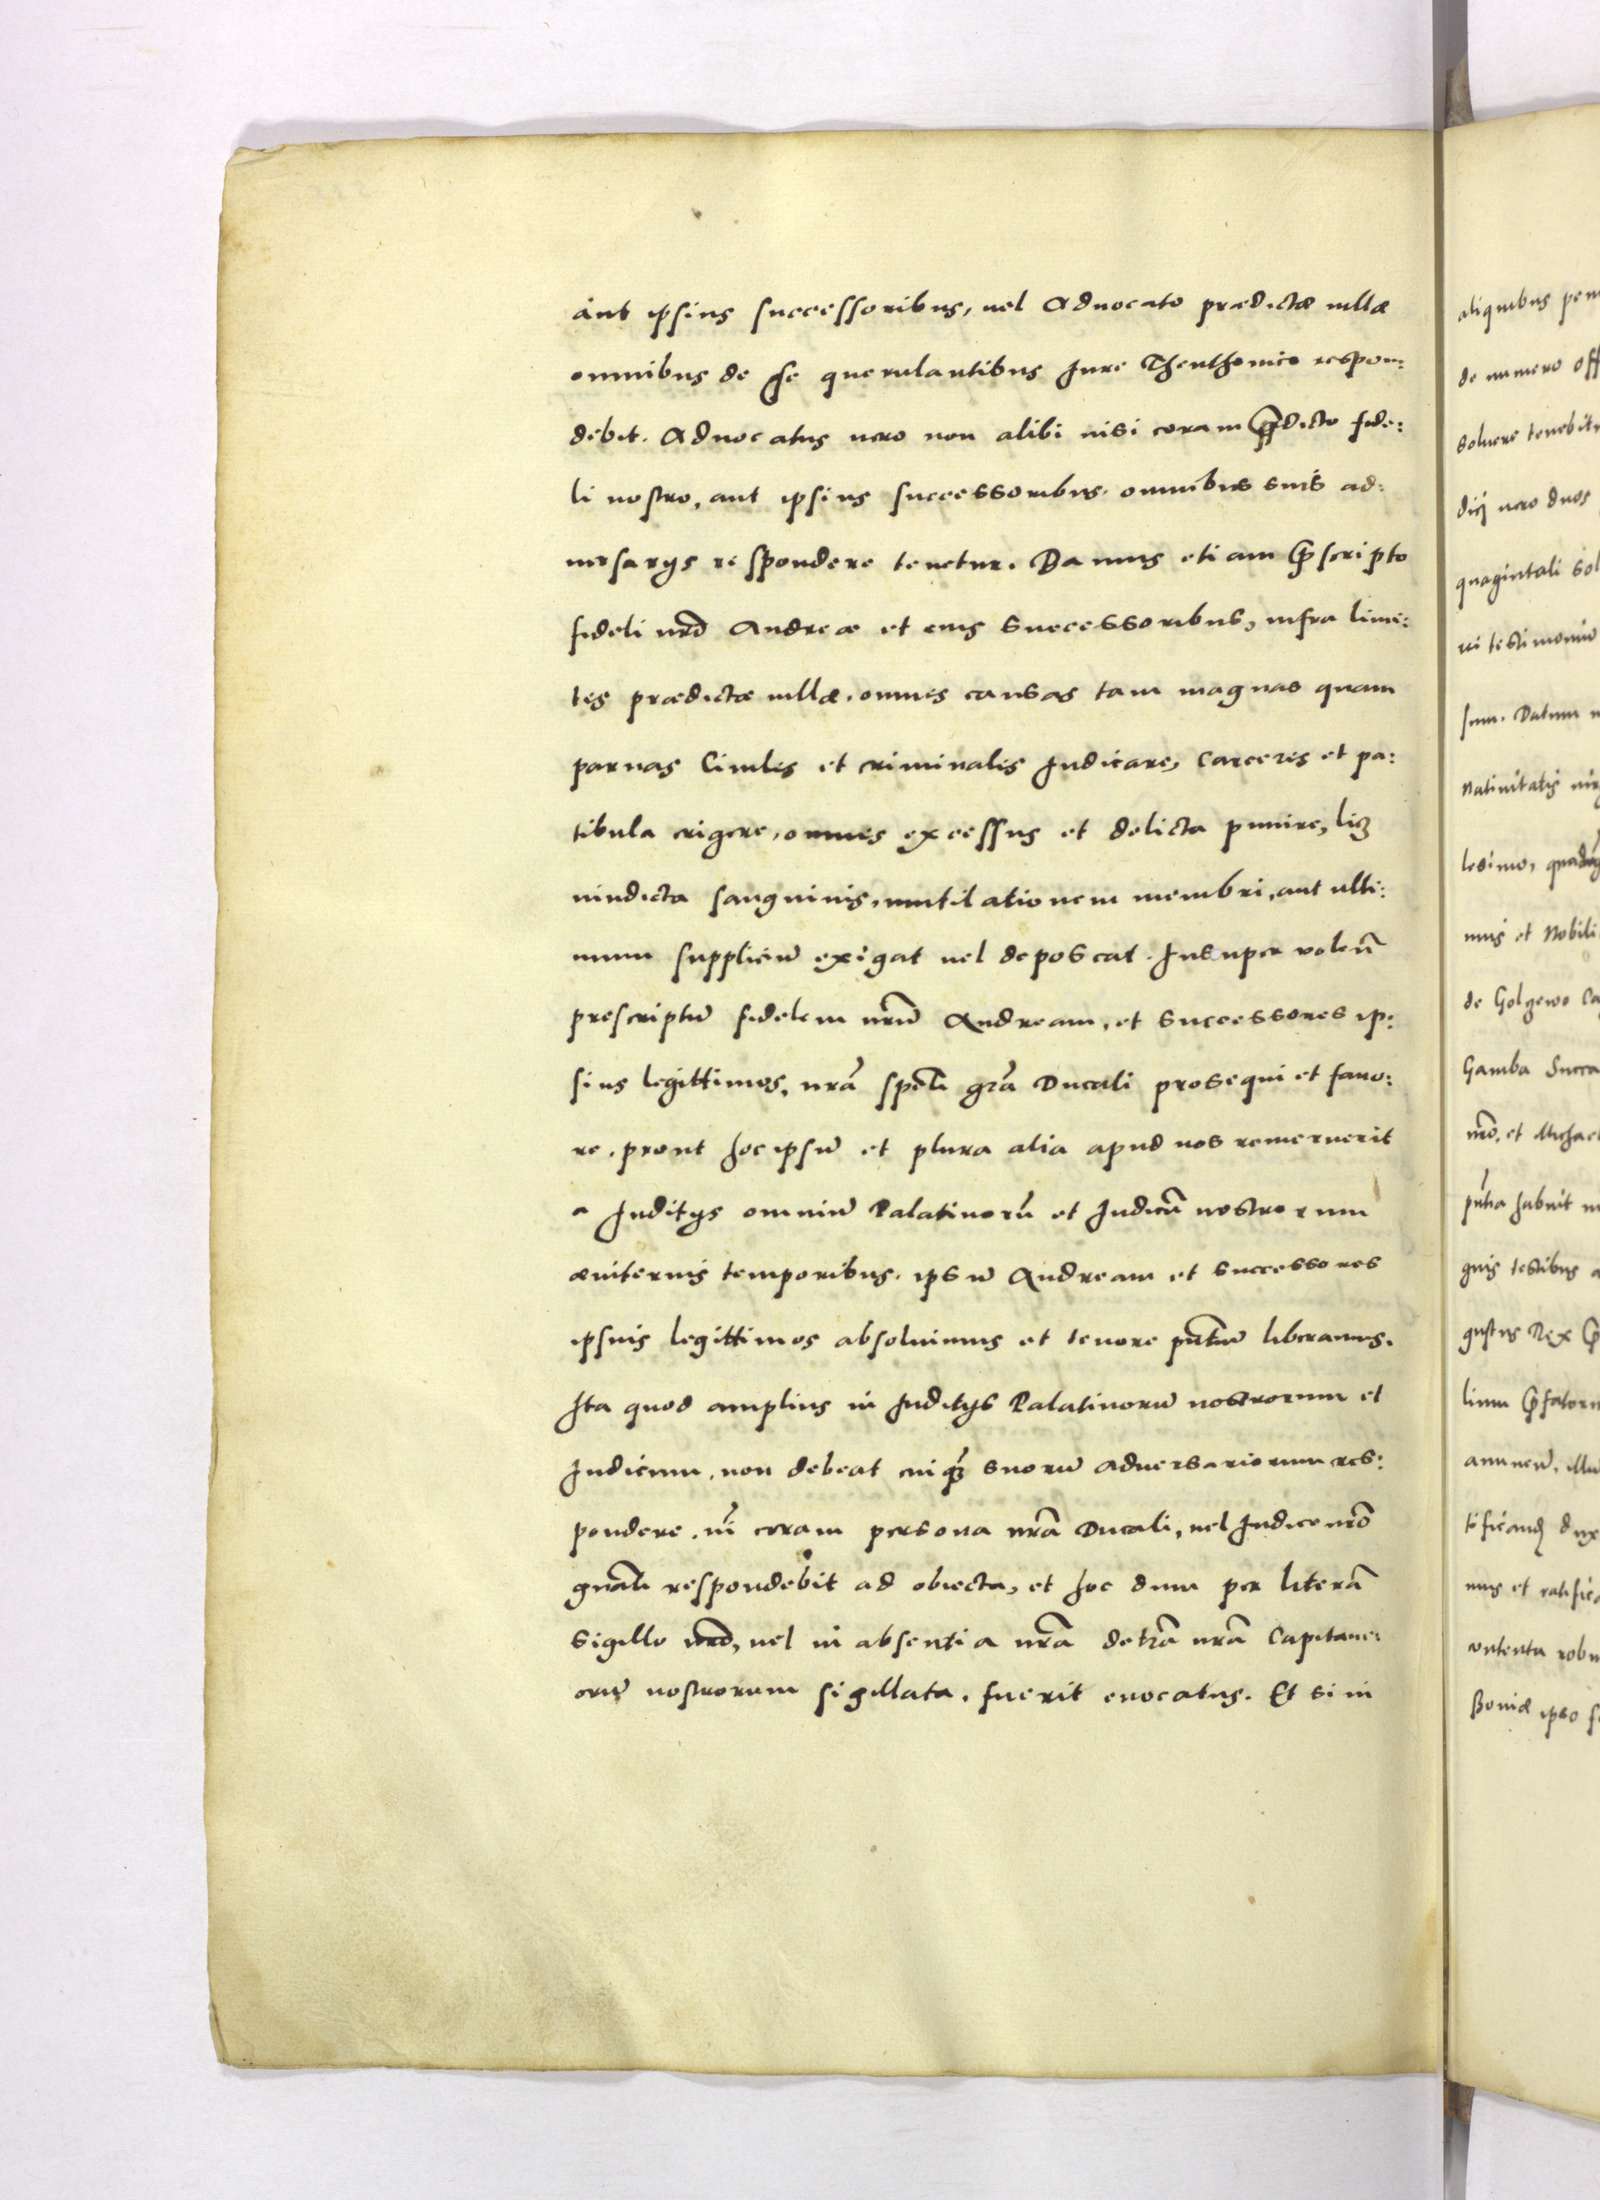 aut ipsius successoribus, uel Aduocato prædictæ uillæ
omnibus de se querulantibus Jure Theuthonico respon:
debit. Aduocatus uero non alibi nisi coram p̃dicto fide:
li nostro, aut ipsius successoribus. omnibus suis ad:
uersarijs respondere tenetur. Damus etiam p̃scripto
fideli nr̃o Andreæ et eius successoribus, infra limi:
tes prædictæ uillæ. omnes causas tam magnas quam
paruas Ciuiles et criminales Judicare, Carceres et pa:
tibula erigere, omnes excessus et delicta punire, licꝫ
uindicta sanguinis, mutilationem membri, aut ulti:
mum suppliciũ exigat uel deposcat. Insuper volen̄
prescriptũ fidelem nr̃ũ Andream, et successores ip:
sius legittimos, nr̃a sp̃ali gr̃a Ducali prosequi et fauo:
re. prout hoc ipsũ et plura alia apud nos remeruerit
a Juditijs omniũ Palatinorũ et Judicũ nostrorum
æuiternis temporibus. ipsũ Andream et successores
ipsuis legittimos absoluimus et tenore pñtiũ liberamus.
Ita quod amplius in Juditijs Palatinorũ nostrorum et
Judicum, non debeat cuiqꝫ suorũ aduersariorum res:
pondere. nĩ coram persona nr̃a Ducali, uel Judice nr̃o
gñali respondebit ad obiecta, et hoc dum per literã
sigillo nr̃o, uel in absentia nr̃a de tr̃a nr̃a Capitane:
orũ nostrorum sigillata, fuerit euocatus. Et si in
aliquibus
de numero
soluere
dicẽ uero duos
quagintali
testimoniũ
sum. Datum
Natiuitatis
lesimo,
mus et Nobili
de Golgewo
Gamba
nr̃o, et Michael
habuit
testibus
Rex
anuneũ.
mus et
contenta
ipso